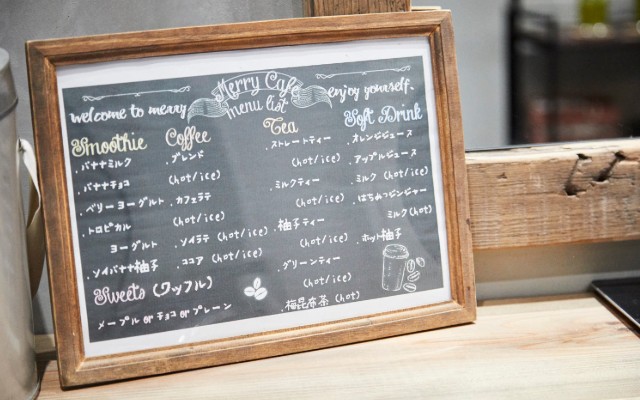 Merry Cafe
menu list
welcome to merry
enjoy yourself.
Smoothie
.バナナミルク
.バナナチョコ
.ベリーヨーグルト
.トロピカル
ヨーグルト
.ソイバナナ柚子
Coffee
.ブレンド
(hot/ice)
.カフェラテ
(hot/ice)
.ソイラテ (hot/ice)
.ココア (hot/ice)
Tea
.ストレートティー
(hot/ice)
.ミルクティー
(hot/ice)
.柚子ティー
(hot/ice)
.グリーンティー
(hot/ice)
.梅昆布茶 (hot)
Soft Drink
.オレンジジュース
.アップルジュース
.ミルク (hot/ice)
.はちみつジンジャー
ミルク(hot)
.ホット柚子
Sweets (ワッフル)
メープル or チョコ or プレーン